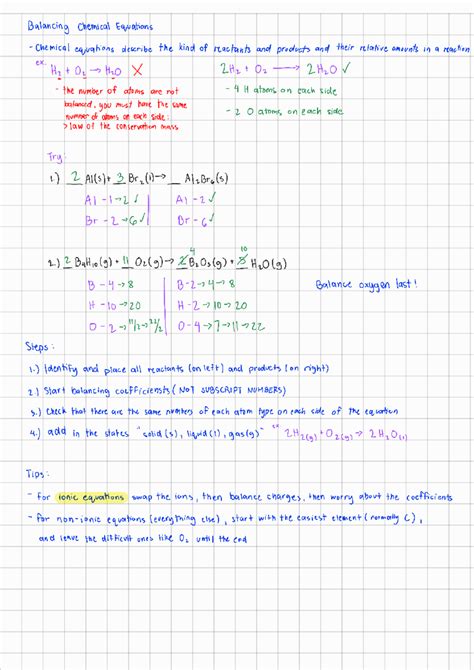 Balancing Chemical Equations
- Chemical equations describe the kind of reactants and products and their relative amounts in a reaction
ex. H₂ + O₂ → H₂O ✗
2H₂ + O₂ → 2H₂O ✓
- the number of atoms are not balanced, you must have the same number of atoms on each side:
> law of the conservation mass.
- 4 H atoms on each side
- 2 O atoms on each side
Try:
1.) 2 Al(s) + 3 Br₂(l) → __ Al₂Br₆(s)
Al - 1 → 2 ✓ Al - 2 ✓
Br - 2 → 6 ✓ Br - 6 ✓
10
2.) 2 B₄H₁₀(g) + 11 O₂(g) → 4 B₂O₃(g) + 5 H₂O(g)
B - 4 → 8 B - 2 → 4 → 8
H - 10 → 20 H - 2 → 10 → 20
O - 2 → 11/2 → 22/2 O - 4 → 7 → 11 → 22
Balance oxygen last!
Steps:
1.) Identify and place all reactants (on left) and products (on right)
2.) Start balancing coefficiensts (NOT SUBSCRIPT NUMBERS)
3.) Check that there are the same numbers of each atom type on each side of the equation
4.) add in the states "solid (s), liquid (l), gas (g)" ex 2H₂(g) + O₂(g) → 2H₂O(l)
Tips:
- For ionic equations swap the ions, then balance charges, then worry about the coefficients
- for non-ionic equations (everything else), start with the easiest element (normally C),
and leave the difficult ones like O₂ until the end